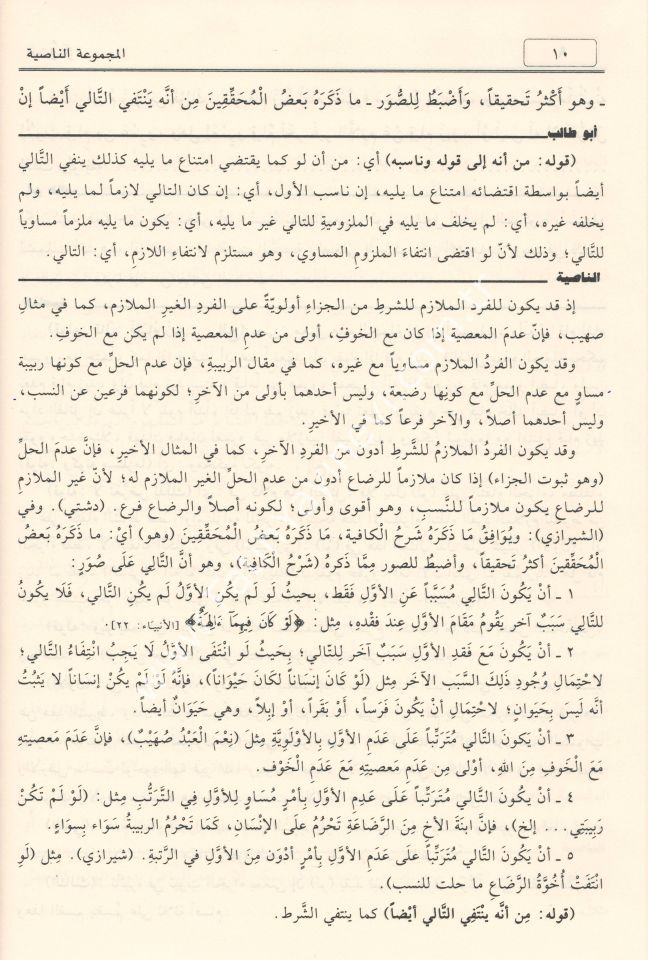 ١٠
المجموعة الناصية
ـ وهو أَكْثَرُ تَحقيقاً، وَأَضْبَطُ لِلصُّوَر ـ ما ذَكَرَهُ بَعضُ الْمُحَقِّقينَ مِن أنَّه يَنْتَفي التَّالي أَيْضاً إنْ
أبو طالب
(قوله: من أنه إلى قوله وناسبه) أي: من أن لو كما يقتضي امتناع ما يليه كذلك ينفي التَّالي
أيضاً بواسطة اقتضائه امتناع ما يليه، إن ناسب الأول، أي: إن كان التالي لازماً لما يليه، ولم
يخلفه غيره، أي: لم يخلف ما يليه في الملزومية للتالي غير ما يليه، أي: يكون ما يليه ملزماً مساوياً
للتَّالي؛ وذلك لأنّ لو اقتضى انتفاءَ الملزومِ المساوي، وهو مستلزم لانتفاءِ اللازمِ، أي: التالي.
الناصية
إذ قد يكون للفرد الملازم للشرطِ من الجزاءِ أولويّةٌ على الفردِ الغيرِ الملازم، كما في مثالِ
صهيب، فإنّ عدمَ المعصية إذا كان مع الخوفِ، أولى من عدم المعصية إذا لم يكن مع الخوفِ.
وقد يكون الفردُ الملازم مساوياً مع غيره، كما في مقال الربيبةِ، فإن عدم الحلِّ مع كونها ربيبة
مساوٍ مع عدم الحلِّ مع كونِها رضيعة، وليس أحدهما بأولى من الآخرِ؛ لكونهما فرعين عن النسب،
وليس أحدهما أصلاً، والآخر فرعاً كما في الأخيرِ.
وقد يكون الفردُ الملازمُ للشَّرطِ أدون من الفردِ الآخرِ، كما في المثال الأخيرِ، فإنَّ عدمَ الحلِّ
(وهو ثبوت الجزاء) إذا كان ملازماً للرضاع أدون من عدمِ الحلِّ الغير الملازم له؛ لأنّ غير الملازمِ
للرضاعِ يكون ملازماً للنَّسبِ، وهو أقوى وأولى؛ لكونه أصلاً والرضاع فرع. (دشتي). وفي
(الشيرازي): ويُوَافِقُ مَا ذَكَرَهُ شَرحُ الكافية، مَا ذَكَرَهُ بَعضُ الْمُحَقِّقِينَ (وهو) أيْ: ما ذَكَرَهُ بَعضُ
الْمُحَقِّقِينَ أكثرُ تَحقيقاً، وأضبطُ للصور مِمَّا ذكرهُ (شَرْحُ الْكَافِية)، وهو أنَّ التَّالي عَلَى صُوَرٍ:
١ ـ أنْ يَكُونَ التَّالي مُسَبَّباً عَنِ الأوَّلِ فَقَط، بحيثُ لو لَم يَكُن الأوَّلُ لَم يكُنِ التَّالي، فَلَا يكُونُ
للتَّالي سَبَبٌ آخر يَقُومُ مَقَامَ الأوَّلِ عِندَ فقدِهِ، مِثل: ﴿لَوْ كَانَ فِيهِمَا ءَالِهَةٌ﴾ [الأنبياء: ٢٢].
٢ ـ أنْ يَكُونَ مَع فَقدِ الأوَّلِ سَبَبٌ آخر لِلتَّالي؛ بِحَيثُ لَو انْتَفَى الأوَّلُ لَا يَجِبُ انْتِفَاءُ التَّالي؛
لاحْتِمَالِ وُجُودِ ذَلِكَ السَّبَبِ الآخَرِ مِثل (لَوْ كَانَ إنْسَاناً لَكَانَ حَيْوَاناً)، فإنَّهُ لَوْ لَمْ يَكُنْ إنْسَاناً لَا يَثبُتُ
أنَّه لَيسَ بِحَيوَانٍ؛ لاحْتِمَالِ أنْ يَكُونَ فَرَساً، أَوْ بَقَراً، أوْ إبِلاً، وهي حَيَوَانٌ أيضاً.
٣ ـ أنْ يَكونَ التَّالي مُتَرَتِّباً عَلَى عَدَمِ الأوَّلِ بِالأوْلَوِيَّةِ مِثلَ (نِعْمَ الْعَبْدُ صُهَيْبٌ)، فإنَّ عَدَمَ مَعصيتِهِ
مَعَ الْخَوفِ مِنَ اللهِ، أوْلَى مِن عَدَمِ مَعصيتِهِ مَعَ عَدَمِ الْخَوْف.
٤ ـ أنْ يَكُونَ التَّالي مُتَرَتِّباً عَلَى عَدِمِ الأوَّلِ بِأمْرٍ مُسَاوٍ لِلأوَّلِ فِي التَّرَتُّبِ مِثل: (لَوْ لَمْ تَكُنْ
رَبِيبَتِي... إلخ)، فإنَّ ابنَةَ الأخِ مِنَ الرَّضَاعَةِ تَحْرُمُ عَلَى الإنْسَانِ، كَمَا تَحْرُمُ الربيبةُ سَوَاء بِسِوَاءٍ.
٥ ـ أنْ يَكُونَ التَّالي مُتَرَتِّباً عَلَى عَدَمِ الأوَّلِ بِأمْرٍ أدْوَنَ مِنَ الأوَّلِ في الرّتبةِ. (شيرازي). مِثل (لَوِ
انْتَفَتْ أُخُوَّةُ الرَّضَاعِ ما حلت للنسب).
(قوله: مِن أنَّه يَنْتَفِي التَّالي أيْضاً) كما ينتفي الشَّرط.